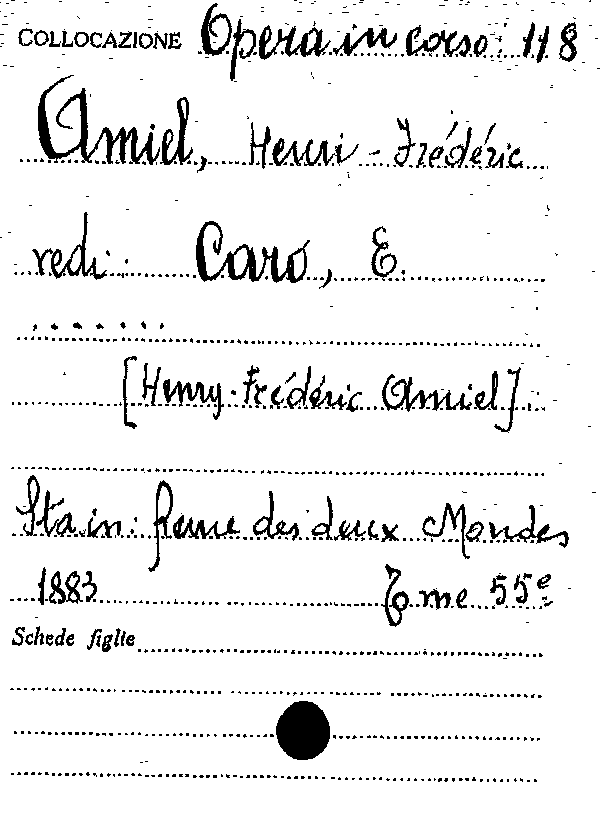 COLLOCAZIONE Opera in corso: 118
Amiel, Henri-Frédéric
vedi: Caro, E.
.......
[Henry-Frédéric Amiel].
Sta in: Revue des deux Mondes
1883 Tome 55e
Schede figlie